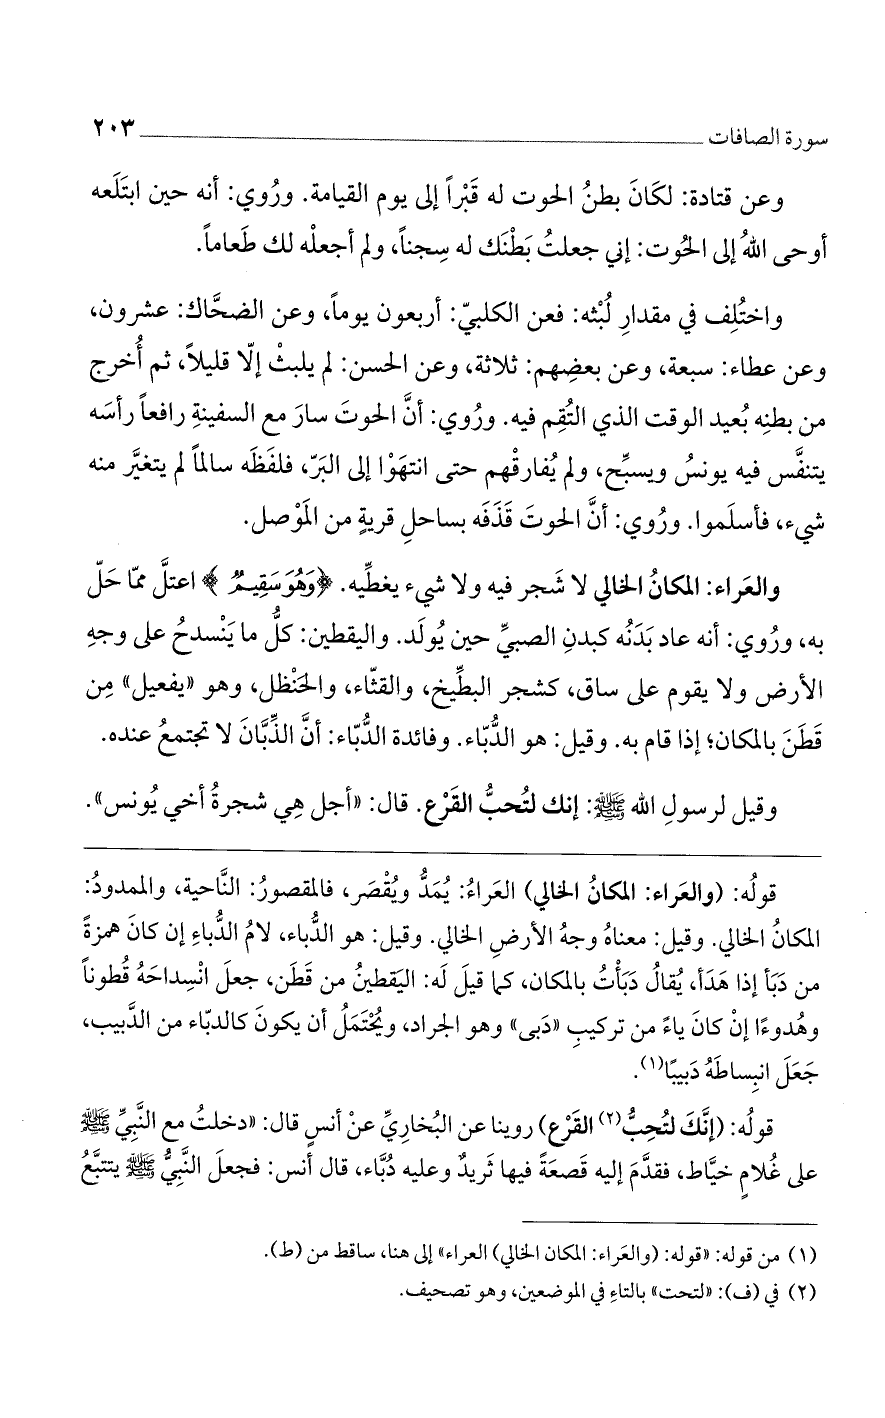 سورة الصافات ٢٠٣
وعن قتادة: لكَانَ بطنُ الحوت له قَبْراً إلى يوم القيامة. ورُوي: أنه حين ابتَلَعه
أوحى اللهُ إلى الحُوت: إني جعلتُ بَطْنَك له سِجناً، ولم أجعلْه لك طَعاماً.
واختُلِف في مقدارِ لُبْثه: فعن الكلبيّ: أربعون يوماً، وعن الضحَّاك: عشرون،
وعن عطاء: سبعة، وعن بعضِهم: ثلاثة، وعن الحسن: لم يلبثْ إلّا قليلاً، ثم أُخرج
من بطنِه بُعيد الوقت الذي التُقِم فيه. ورُوي: أنَّ الحوتَ سارَ مع السفينةِ رافعاً رأسَه
يتنفَّس فيه يونسُ ويسبِّح، ولم يُفارقْهم حتى انتهَوْا إلى البَرّ، فلفَظَه سالماً لم يتغيَّر منه
شيء، فأسلَموا. ورُوي: أنَّ الحوتَ قَذَفَه بساحلِ قريةٍ من المَوْصل.
والعَراء: المكانُ الخالي لا شَجر فيه ولا شيء يغطِّيه. ﴿وَهُوَ سَقِيمٌ﴾ اعتلَّ ممّا حَلّ
به، ورُوي: أنه عاد بَدَنُه كبدنِ الصبيِّ حين يُولَد. واليقطين: كلُّ ما يَنْسدحُ على وجهِ
الأرض ولا يقوم على ساق، كشجر البطِّيخ، والقثّاء، والحَنْظل، وهو «يفعيل» مِن
قَطَنَ بالمكان؛ إذا قام به. وقيل: هو الدُّبّاء. وفائدة الدُّبّاء: أنَّ الذِّبَّانَ لا تجتمعُ عنده.
وقيل لرسولِ الله ﷺ: إنك لتُحبُّ القَرْع. قال: «أجل هِي شجرةُ أخي يُونس».
قولُه: (والعَراء: المكانُ الخالي) العَراءُ: يُمَدُّ ويُقْصَر، فالمقصورُ: النَّاحية، والممدودُ:
المكانُ الخالي. وقيل: معناهُ وجهُ الأرضِ الخالي. وقيل: هو الدُّباء، لامُ الدُّباءِ إن كانَ همزةً
من دَبَأ إذا هَدَأ، يُقالُ دَبَأْتُ بالمكان، كما قيلَ لَه: اليَقطينُ من قَطَن، جعلَ انْسِداحَهُ قُطوناً
وهُدوءًا إنْ كانَ ياءً من تركيبِ «دَبى» وهو الجراد، ويُحْتَمَلُ أن يكونَ كالدبّاء من الدَّبيب،
جَعَلَ انبِساطَهُ دَبيبًا(١).
قولُه: (إنَّكَ لتُحِبُّ(٢) القَرْع) روينا عن البُخاريِّ عنْ أنسٍ قال: «دخلتُ مع النَّبيِّ ﷺ
على غُلامٍ خيَّاط، فقدَّمَ إليه قَصعَةً فيها ثَريدٌ وعليه دُبَّاء، قال أنس: فجعلَ النَّبيُّ ﷺ يتتبَّعُ
(١) من قوله: «قوله: (والعَراء: المكان الخالي) العراء» إلى هنا، ساقط من (ط).
(٢) في (ف): «لتحت» بالتاءِ في الموضعين، وهو تصحيف.